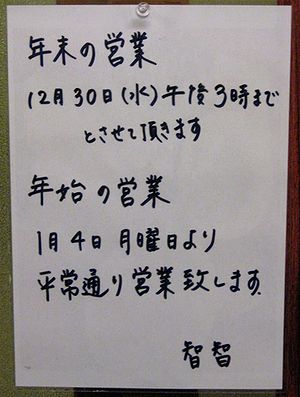 年末の営業
12月30日(水)午後3時まで
とさせて頂きます
年始の営業
1月4日 月曜日より
平常通り営業致します.
智智